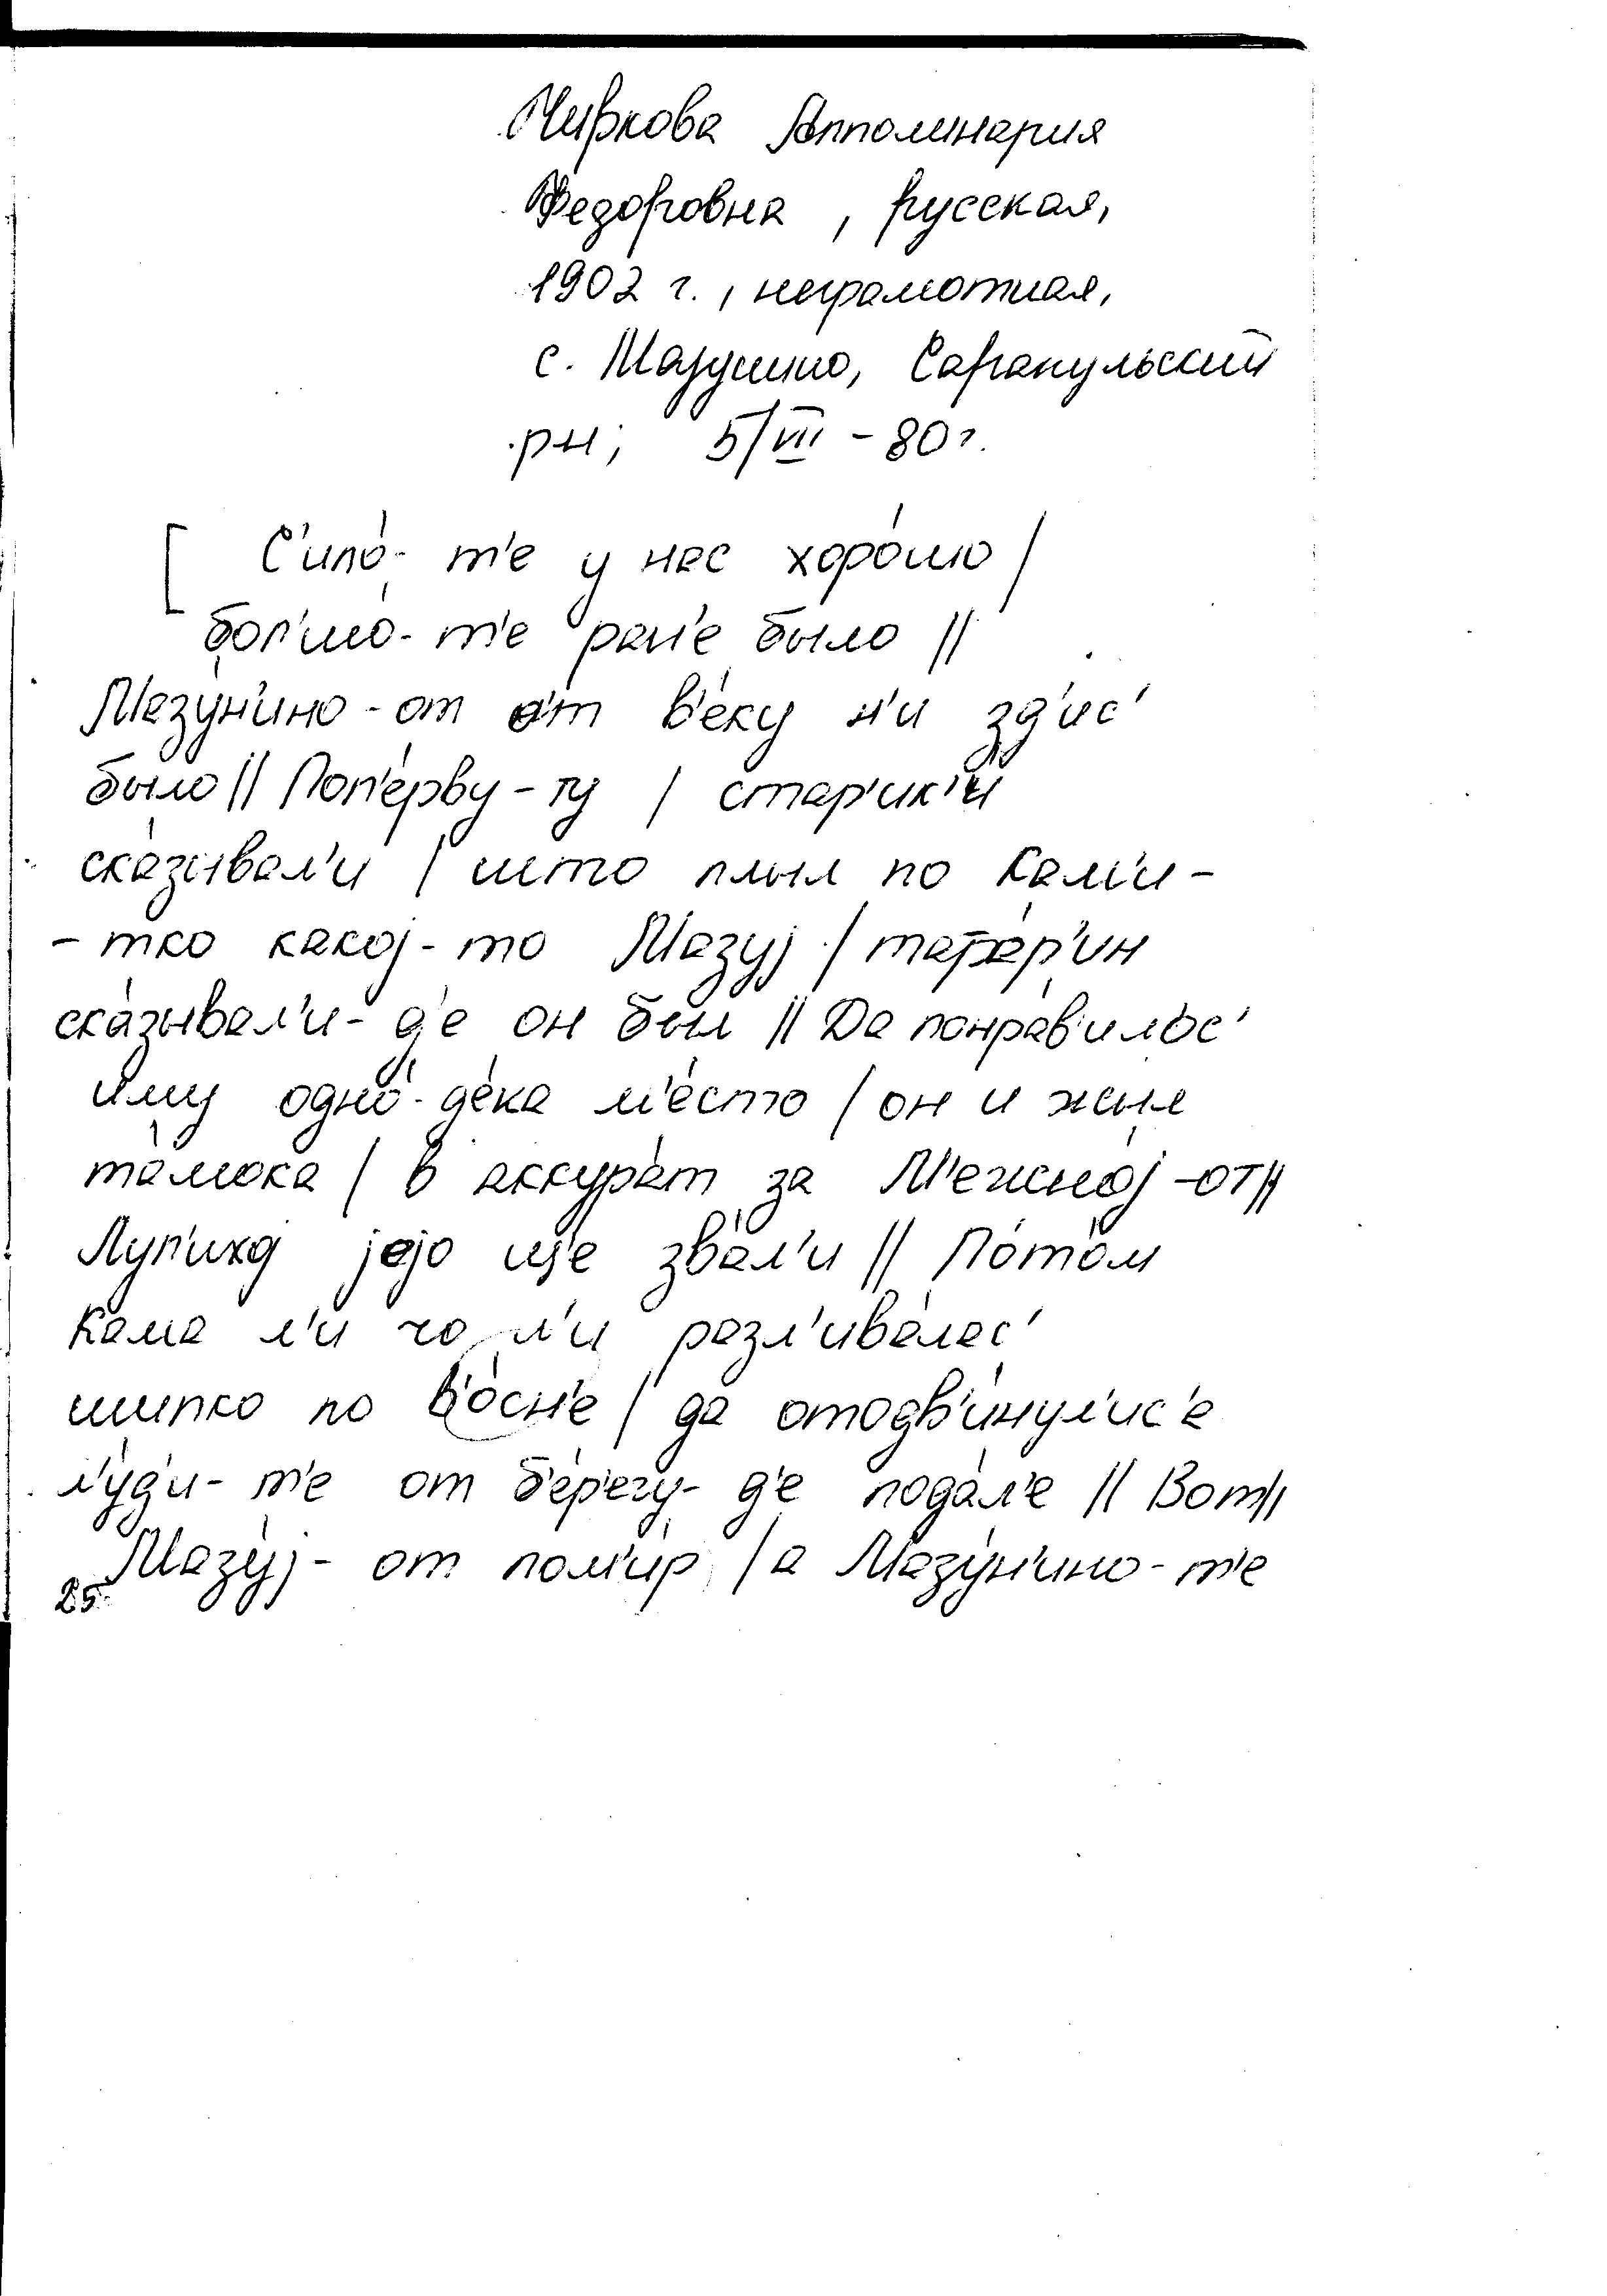 Чиркова Апполинария
Федоровна , русская,
1902 г. , неграмотная,
с. Мазунино, Сарапульский
рн; 5/VII - 80 г.
[ С'ило́- т'е у нас хоро́шо /
бол'шо́- т'е ран'е было //
Мазу́н'ино - от о́т в'е́ку н'и зд'ис'
было // Поп'е́рву - ту / стар'ик'и́
ска́зывал'и / што плыл по Кам'и -
- тко какој - то Мазуј / тата́р'ин
ска́зывал'и - д'е он был // Да понра́в'илос'
иму́ одно́ - де́ка м'е́сто / он и жыл
та́мока / в аккура́т за М'ежно́ј - от //
Луп'иха јејо иш'е зва́л'и // По́то́м
Кама л'и чо л'и разл'ива́лас'
шипко по в'о́сн'е / да отодв'и́нул'ис'е
л'у́ди - т'е от б'е́р'егу - д'е пода́л'е // Вот //
Мазу́ј - от пом'ир / а Мазу́н'ино - т'е
25.